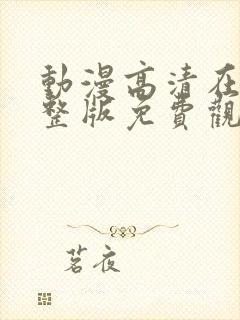 動漫高清在
整版免費觀
茗夜